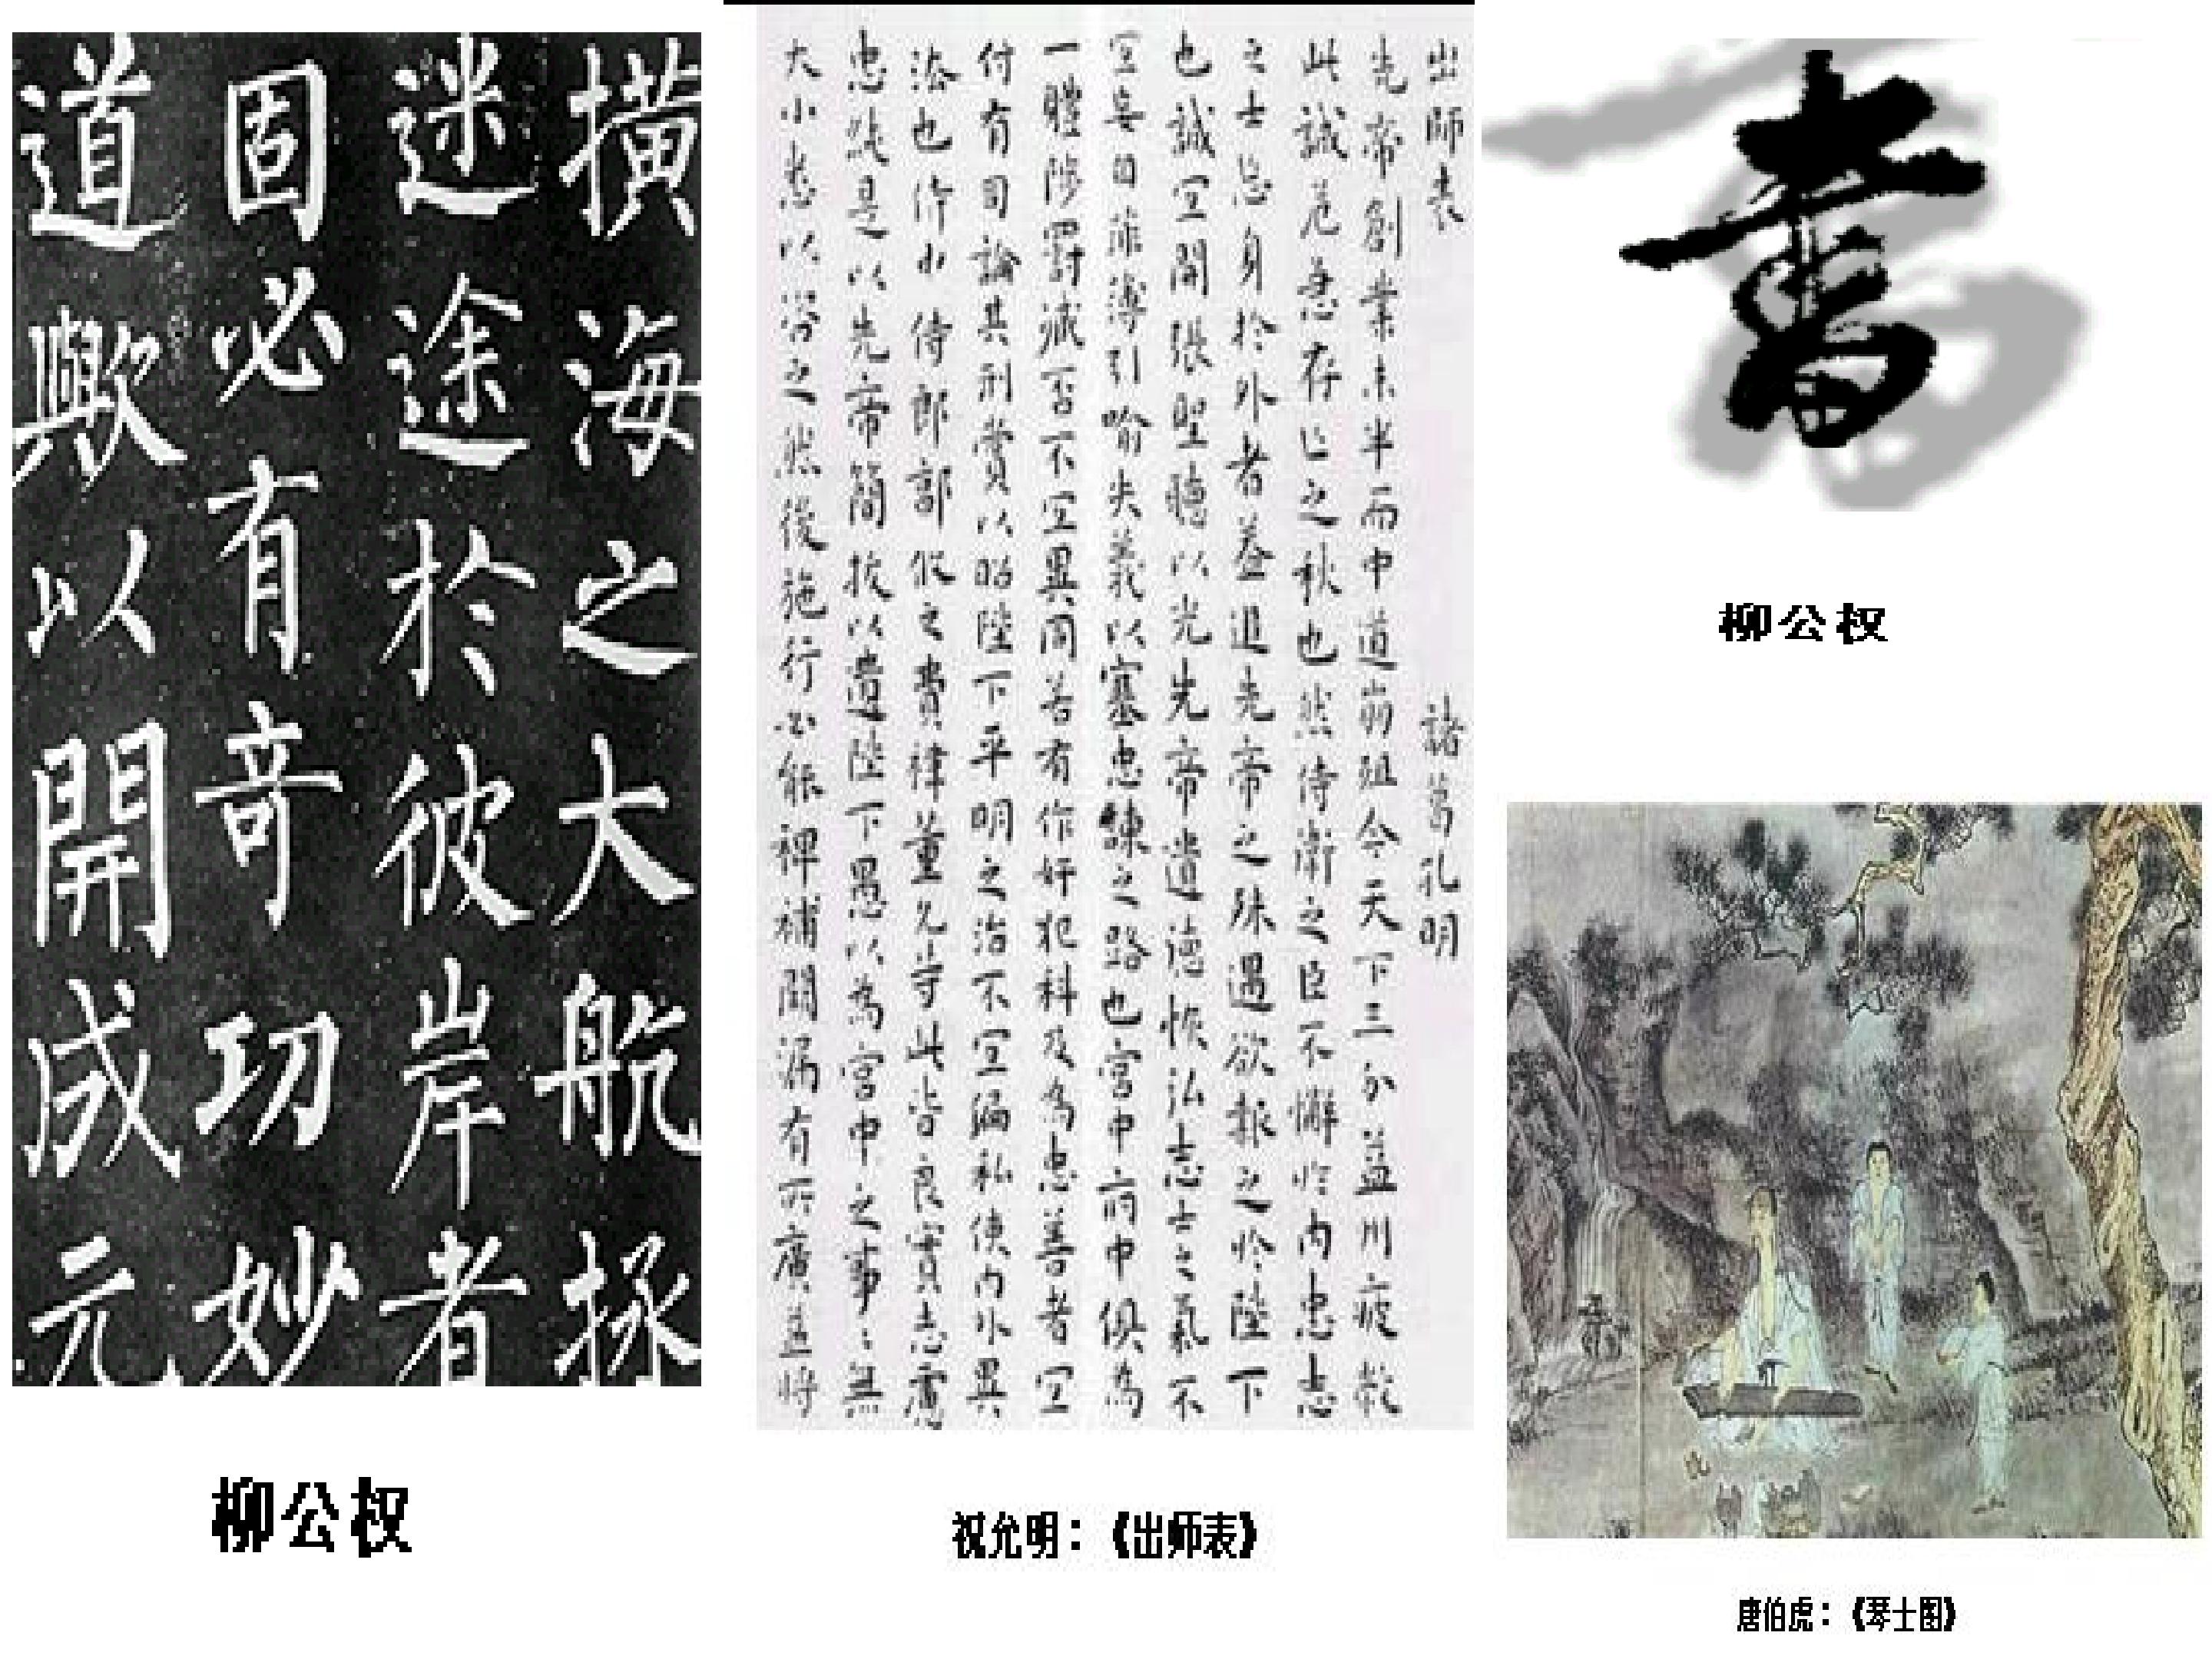 撗海之大航拯
迷途於彼岸者
固必有奇功妙
道歟以開成元
柳公权
出師表 諸葛孔明
先帝創業未半而中道崩殂今天下三分益州疲敝
此誠危急存亡之秋也然侍衛之臣不懈於內忠志
之士忘身於外者蓋追先帝之殊遇欲報之於陛下
也誠宜開張聖聽以光先帝遺德恢弘志士之氣不
宜妄自菲薄引喻失義以塞忠諫之路也宮中府中俱為
一體陟罰臧否不宜異同若有作奸犯科及為忠善者宜
付有司論其刑賞以昭陛下平明之治不宜偏私使內外異
法也侍中侍郎郭攸之費禕董允等此皆良實志慮
忠純是以先帝簡拔以遺陛下愚以為宮中之事〻無
大小悉以咨之然後施行必能裨補闕漏有所廣益將
祝允明：《出师表》
書
柳公权
唐伯虎：《琴士图》